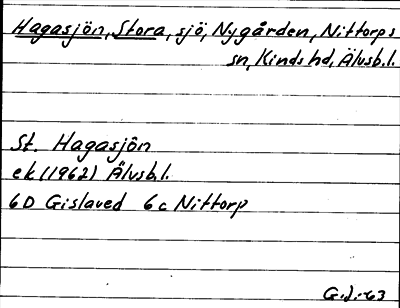 Hagasjön, Stora, sjö, Nygården, Nittorps
sn, Kinds hd, Älvsb.l.
St. Hagasjön
ek (1962) Älvsb.l.
6D Gislaved 6c Nittorp
G.J.-63